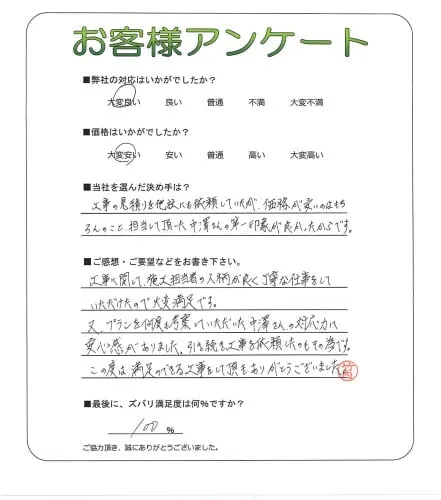 お客様アンケート
■弊社の対応はいかがでしたか？
大変良い 良い 普通 不満 大変不満
■価格はいかがでしたか？
大変安い 安い 普通 高い 大変高い
■当社を選んだ決め手は？
工事の見積りを他社にも依頼していたが、価格が安いのはもち
ろんのこと、担当して頂いた中澤さんの第一印象が良かったからです。
■ご感想・ご要望などをお書き下さい。
工事に関して、施工担当者の人柄が良く丁寧な仕事をして
いただけたので大変満足です。
又、プランを何度も考案していただいた中澤さんの対応力に
安心感がありました。引き続き工事を依頼したのもその為です。
この度は、満足のできる工事をして頂きありがとうございました。
■最後に、ズバリ満足度は何％ですか？
100 %
ご協力頂き、誠にありがとうございました。